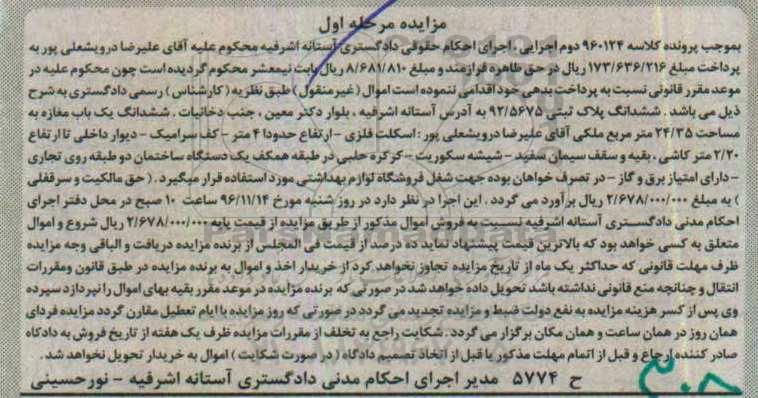 مزایده مرحله اول
بموجب پرونده کلاسه ۹۶۰۱۲۴ دوم اجرایی، اجرای احکام حقوقی دادگستری آستانه اشرفیه محکوم علیه آقای علیرضا درویشعلی پور به
پرداخت مبلغ ۱۷۳/۶۳۶/۲۱۶ ریال در حق طاهره فرازمند و مبلغ ۸/۶۸۱/۸۱۰ ریال بابت نیمعشر محکوم گردیده است چون محکوم علیه در
موعد مقرر قانونی نسبت به پرداخت بدهی خود اقدامی ننموده است اموال (غیرمنقول) طبق نظریه (کارشناس) رسمی دادگستری به شرح
ذیل می باشد. ششدانگ پلاک ثبتی ۹۲/۵۶۷۵ به آدرس آستانه اشرفیه، بلوار دکتر معین، جنب دخانیات. ششدانگ یک باب مغازه به
مساحت ۲۴/۳۵ متر مربع ملکی آقای علیرضا درویشعلی پور: اسکلت فلزی - ارتفاع حدودا ۴ متر - کف سرامیک - دیوار داخلی تا ارتفاع
۲/۲۰ متر کاشی، بقیه و سقف سیمان سفید - شیشه سکوریت - کرکره حلبی در طبقه همکف یک دستگاه ساختمان دو طبقه روی تجاری
- دارای امتیاز برق و گاز - در تصرف خواهان بوده جهت شغل فروشگاه لوازم بهداشتی مورد استفاده قرار میگیرد. (حق مالکیت و سرقفلی
) به مبلغ ۲/۶۷۸/۰۰۰/۰۰۰ ریال برآورد می گردد. این اجرا در نظر دارد در روز شنبه مورخ ۹۶/۱۱/۱۴ ساعت ۱۰ صبح در محل دفتر اجرای
احکام مدنی دادگستری آستانه اشرفیه نسبت به فروش اموال مذکور از طریق مزایده از قیمت پایه ۲/۶۷۸/۰۰۰/۰۰۰ ریال شروع و اموال
متعلق به کسی خواهد بود که بالاترین قیمت پیشنهاد نماید ده درصد از قیمت فی المجلس از برنده مزایده دریافت و الباقی وجه مزایده
ظرف مهلت قانونی که حداکثر یک ماه از تاریخ مزایده تجاوز نخواهد کرد از خریدار اخذ و اموال به برنده مزایده در طبق قانون ومقررات
انتقال و چنانچه منع قانونی نداشته باشد تحویل داده خواهد شد در صورتی که برنده مزایده در موعد مقرر بقیه بهای اموال را نپردازد سپرده
وی پس از کسر هزینه مزایده به نفع دولت ضبط و مزایده تجدید می گردد در صورتی که روز مزایده با ایام تعطیل مقارن گردد مزایده فردای
همان روز در همان ساعت و همان مکان برگزار می گردد. شکایت راجع به تخلف از مقررات مزایده ظرف یک هفته از تاریخ فروش به دادگاه
صادر کننده ارجاع و قبل از اتمام مهلت مذکور یا قبل از اتخاذ تصمیم دادگاه (در صورت شکایت) اموال به خریدار تحویل نخواهد شد.
ح ۵۷۷۴ مدیر اجرای احکام مدنی دادگستری آستانه اشرفیه - نورحسینی